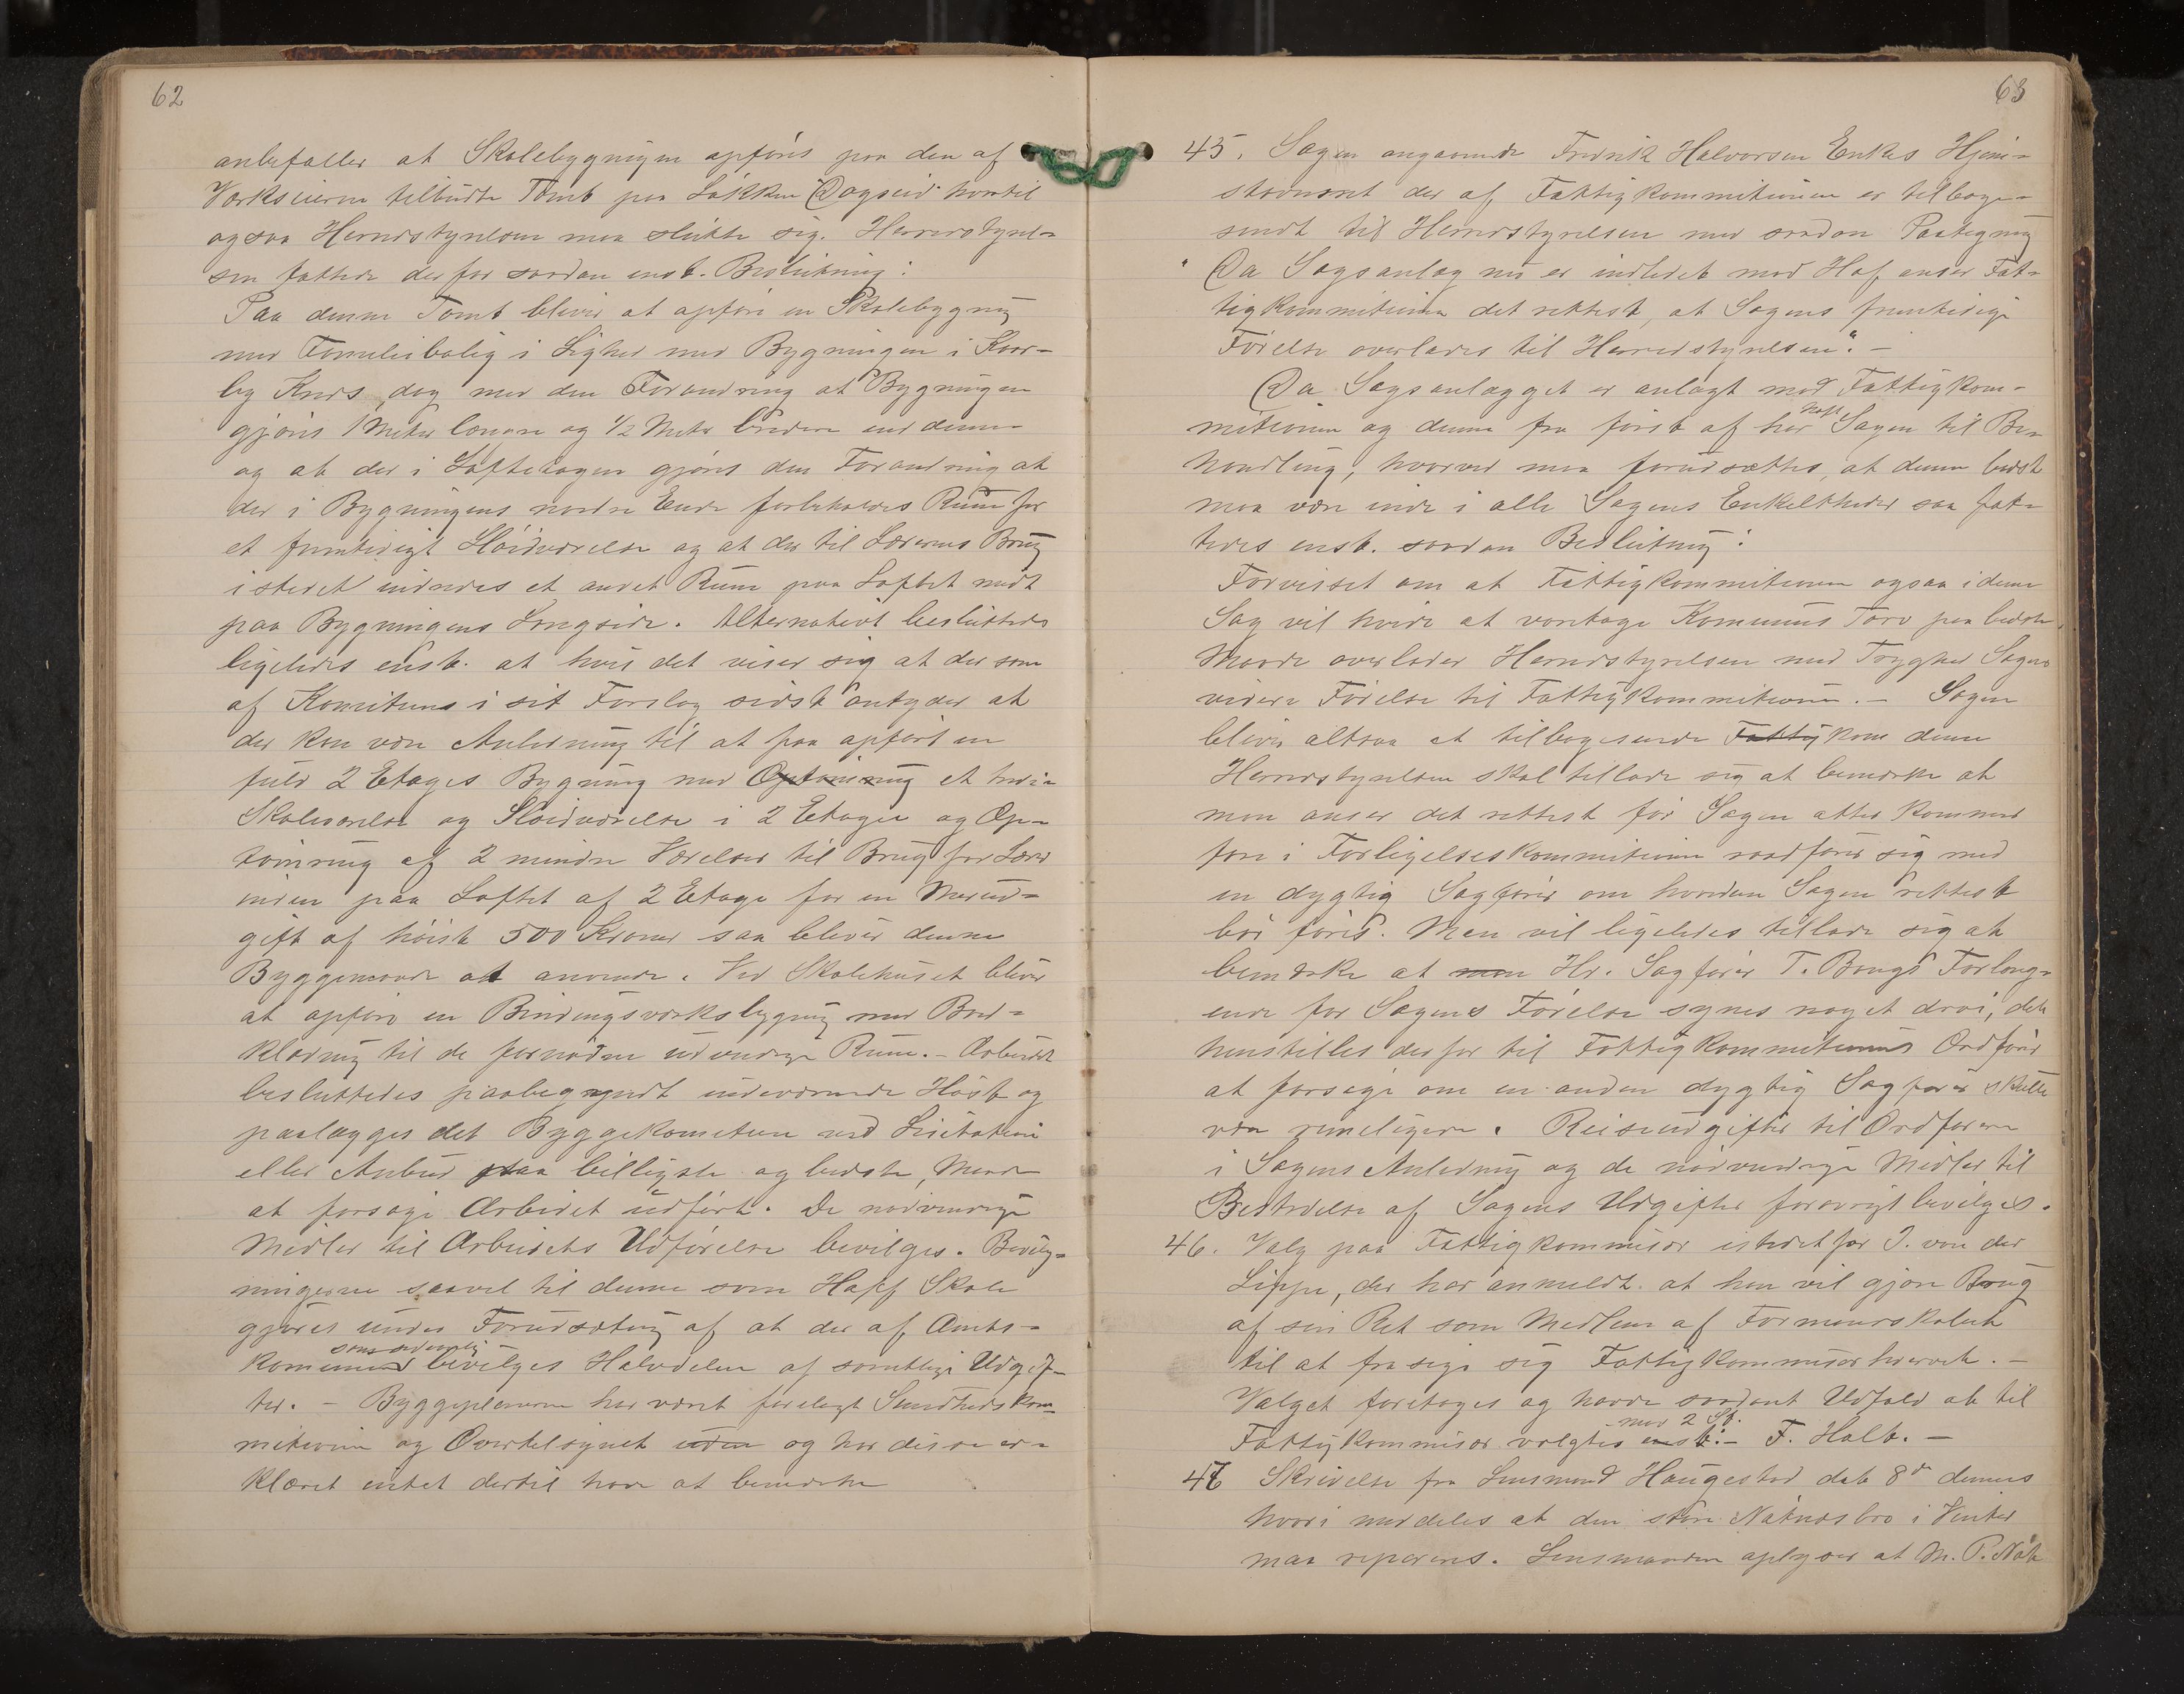 62
anbefaller at Skolebygnigen opføres paa den af
Værkseierne tilbudte Tomt paa Løkken Dagseid hvortil
ogsaa Herredstyrelsen maa slutte sig. Herredstyrel-
sen fattede derfor saadan enst. Beslutning:
Paa denne Tomt bliver at opføre en Skolebygnig
med Familiebolig i Lighed med Bygningen i
by Kreds dog med den Forandring at Bygningen
gjøres 1 Meter længere og 1/2 Meter bredere end denne
og at der i Loftetagen gjøres den Forandring at
der i Bygningens nordre Ende forbeholdes Rum for
et fremtidigt Sløidværelse og at der til Lærerens Brug
istedet indredes et andet Rum paa Loftet midt
paa Bygningens Langside. Alternativt besluttedes
ligeledes enst. at hvis det viser sig at der som
af Komiteens i sit Forslag sidst antyder at
der kan være Anledning til at faa opført en
fuld 2 Etages Bygning med Optømring et tredie
Skoleværelse og Sløidværelse i 2 Etage og Op-
tømring af 2 mindre Værelser til Brug for Lærer
inden paa Loftet af 2 Etage for en Merud-
gift af høist 500 Kroner saa bliver denne
Byggemaade at anvende. Ved Skolehuset bliver
at opføre en Bindingsværksbygnig med Bord-
klædnig til de fornødne udvendige Rum. - Arbeidet
besluttedes paabegyndt indeværende Høst og
paalægges det Byggekomiteen ved Lisitation
eller Anbud paa billigste og bedste Maade
at forsøge Arbeidet udført. De nødvendige
Midler til Arbeidets Udførelse bevilges. Bevilg-
ningerne saavel til denne som Haff Skole
gjøres under Forudsætnig af at der af Amts-
som sedvanlig
kommunen bevilges Halvdelen af samtlige Udgif-
ter. - Byggeplanerne har været forelagt Sundhedskom-
mitionen og Overtilsynet uden og har disse er-
klæret intet dertil have at bemærke
63
45. Sagen angaaende Fredrik Halvorsen Enkes Hjem-
stavnsret der af Fattigkommitionen er tilbage-
sendt til Herredstyrelsen med saadan Paategnig
" Da Sagsanlæg nu er indledet mod Hof anser Fat-
tigkommitionen det rettest, at Sagens fremtidige
Førelse overlades til Herredstyrelsen". -
Da Sagsanlægget er anlagt mod Fattigkom-
mitionen og denne fra først af har havt Sagen til Be-
handling, hvorved maa forudsættes, at denne bedst
maa være inde i alle Sagens Enkeltheder saa fat-
tedes enst. saadan Beslutnig:
Forvisset om at Fattigkommitionen ogsaa i denne
Sag vil vide at varetage Komunens Tarv paa bedste
Maade overlader Herredstyrelsen med Tryghed Sagens
videre Førelse til Fattigkommitionen. - Sagen
bliver altsaa at tilbagesende Fattigkom denne
Herredstyrelsen skal tillade sig at bemærke at
man anser det rettest før Sagen atter kommer
fore i Forligelseskommitionen raadfører sig med
en dygtig Sagfører om hvordan Sagen rettest
bør føres. Man vil ligeledes tillade sig at
bemærke at man Hr. Sagfører T. Bangs Forlang-
ende for Sagens Førelse synes noget drøi, det
henstilles derfor til Fattigkommitionens Ordfører
at forsøge om en anden dygtig Sagfører skulle
være rimeligere. Reiseudgifter til Ordføreren
i Sagens Anledning og de nødvendige Midler til
Bestridelse af Sagens Udgifter forøvrigt bevilges.
46. Valg paa Fattigkommisær istedetfor J. von der
Lippe, der har anmeldt at han vil gjøre Brug
af sin Ret som Medlem af Formandskabet
til at frasige sig Fattigkommisærhvervet. -
Valget foretoges og havde saadant Udfald at til
med 2 St.
Fattigkommisær valgtes enst: - F. Holt. -
47 Skrivelse fra Lensmand Haugestad dat 8de dennes
hvori meddeles at den store Natnæsbro i Vinter
maa repareres. Lensmanden oplyser at M. P. Nat